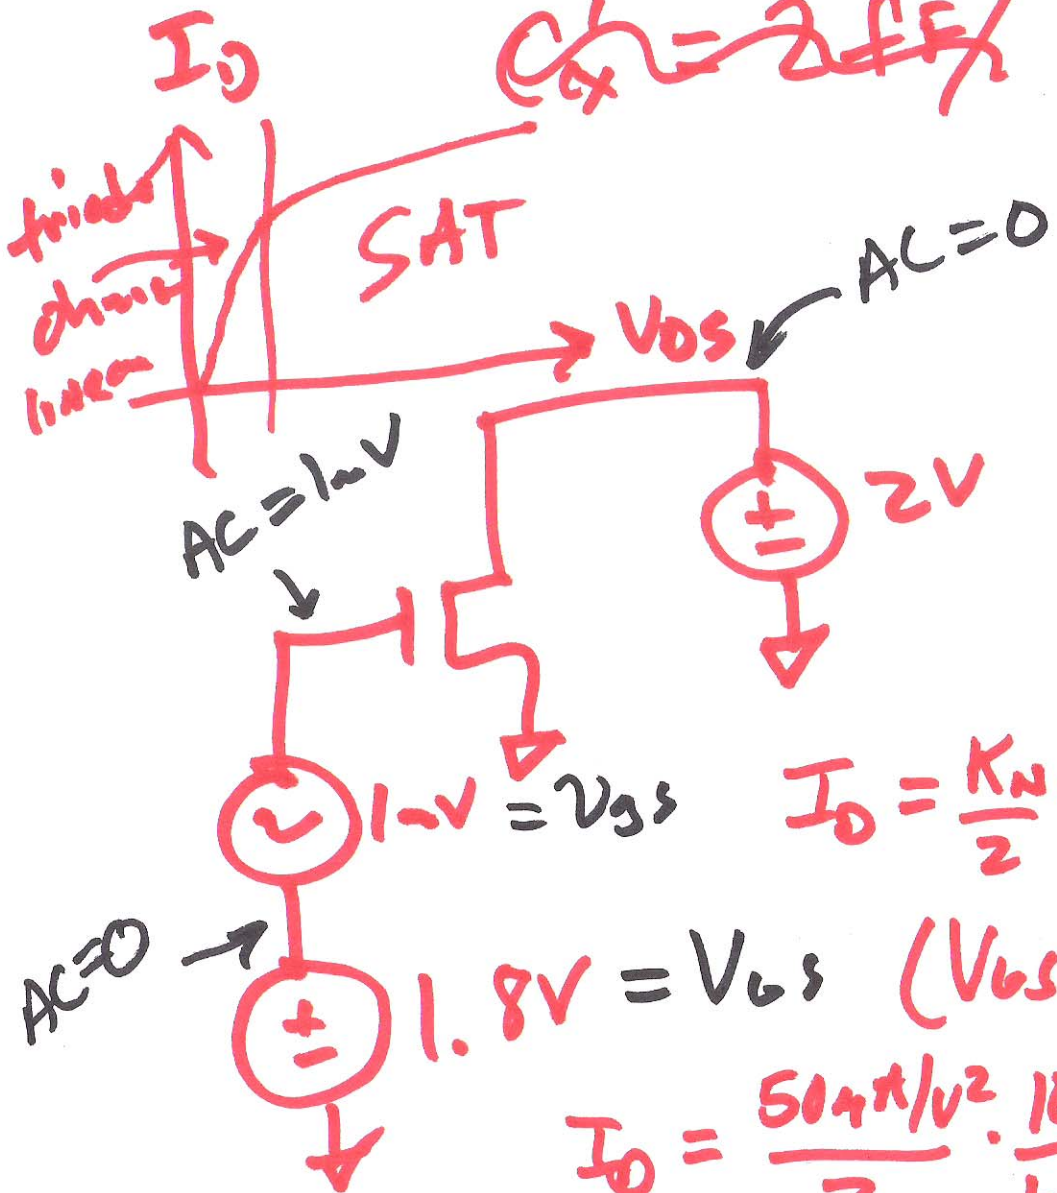 I_D
C'ox = 2 fF/
triode
ohmic
linear
SAT
AC=0
V_DS
AC=1mV
+
−
2V
1mV = v_gs
I_D = K_N/2
AC=0
+
−
1.8V = V_GS (V_GS
I_D = 50μA/V² · 10